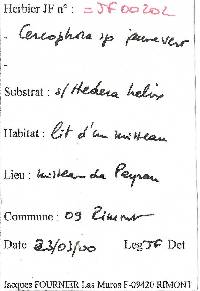 Herbier JF n° : = JF 00202
- Cercophora sp jaune vert
Substrat : s/ Hedera helix
Habitat : lit d'un ruisseau
Lieu : ruisseau de Peyrau
Commune : 09 Rimont
Date 23/03/00 Leg JF Det
Jacques FOURNIER Las Muros F-09420 RIMONT